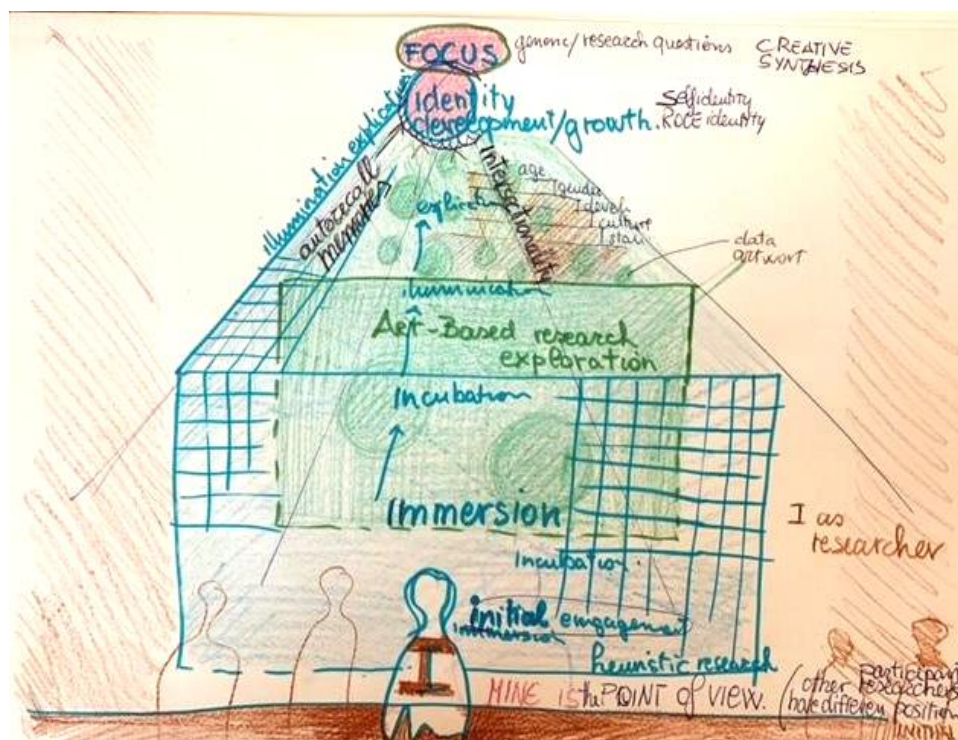 FOCUS
generic/research questions
CREATIVE
SYNTHESIS
identity
development/growth.
Self identity
ROLE identity
illumination explication
autorecall
memories
Intersectionality
age
gender
level
culture
explication
data
artwort
illumination
Art-Based research
exploration
Incubation
Immersion
I as
researcher
Incubation.
initial engagement
immersion
heuristic research
I
MINE is the POINT OF VIEW.
(other
participant
researchers
have different position
INITIAL